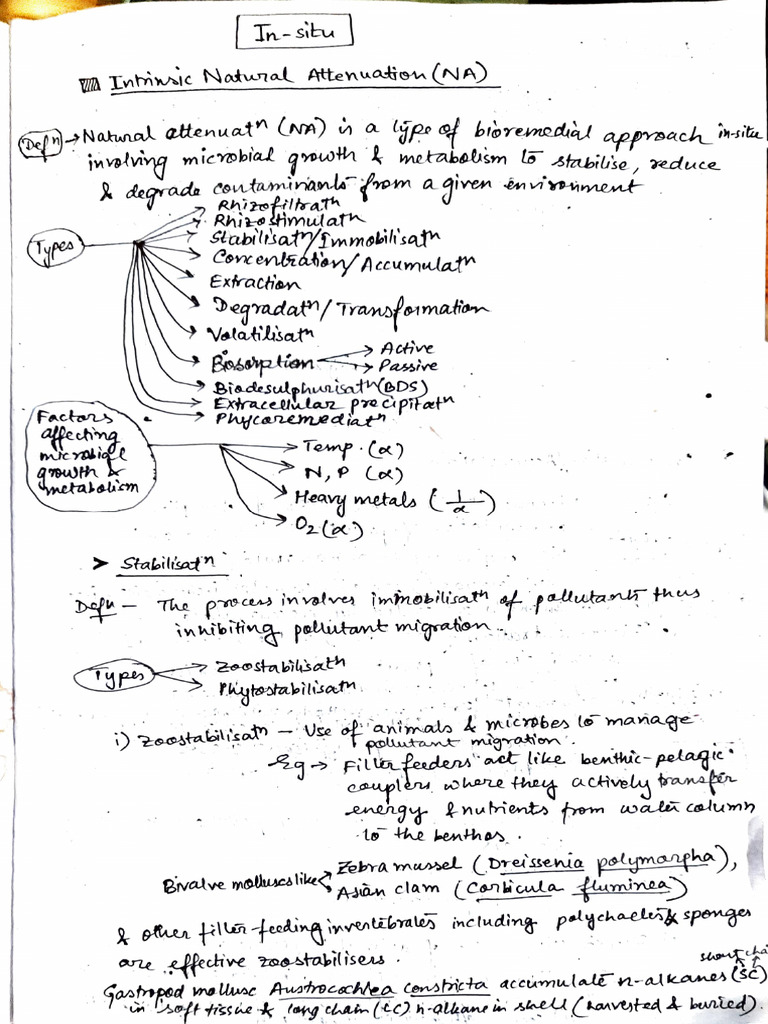 In-situ
Intrinsic Natural Attenuation (NA)
Defⁿ → Natural attenuatⁿ (NA) is a type of bioremedial approach in-situ
involving microbial growth & metabolism to stabilise, reduce
& degrade contaminants from a given environment
Types
Rhizofiltratⁿ
Rhizostimulatⁿ
Stabilisatⁿ/Immobilisatⁿ
Concentration/Accumulatⁿ
Extraction
Degradatⁿ/Transformation
Volatilisatⁿ
Biosorption → Active
→ Passive
Biodesulphurisatⁿ (BDS)
Extracellular precipitatⁿ
Phycoremediatⁿ
Factors
affecting
microbial
growth &
metabolism
Temp. (α)
N, P (α)
Heavy metals (1/α)
O₂ (α)
➤ Stabilisatⁿ
Defn – The process involves immobilisatⁿ of pollutants thus
inhibiting pollutant migration.
Types
Zoostabilisatⁿ
Phytostabilisatⁿ
i) Zoostabilisatⁿ – Use of animals & microbes to manage
pollutant migration.
Eg → Filter feeders act like benthic-pelagic
couplers where they actively transfer
energy & nutrients from water column
to the benthos.
Bivalve molluscs like
Zebra mussel (Dreissenia polymorpha),
Asian clam (Corbicula fluminea)
& other filter-feeding invertebrates including polychaetes & sponges
are effective zoostabilisers.
short chai
Gastropod mollusc Austrocochlea constricta accumulate n-alkanes (SC)
in soft tissue & long chain (LC) n-alkane in shell (harvested & buried).